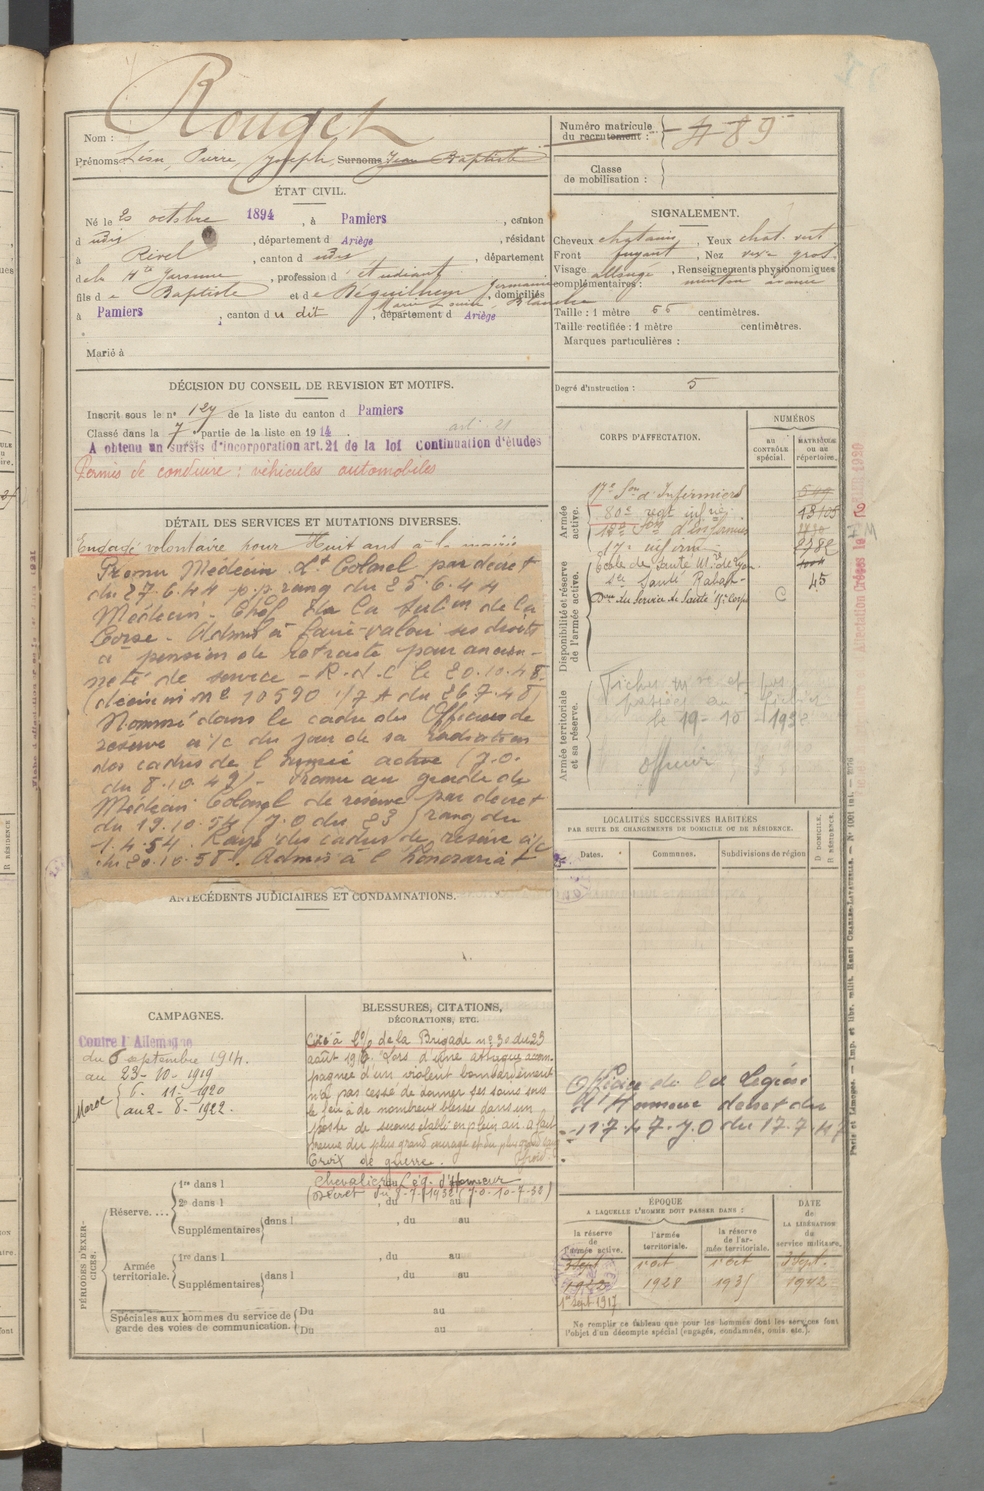 Rouget
Nom :
Prénoms Léon, Pierre, Joseph, Surnoms Jean Baptiste
Numéro matricule
du recrutement : 489
Classe
de mobilisation :
ÉTAT CIVIL.
Né le 20 octobre 1894, à Pamiers, canton
d udit, département d Ariège, résidant
à Rivel, canton d udit, département
de la Hte Garonne, profession d' étudiant
fils de Baptiste et de Béquilhem Germaine, domiciliés
Marie Louise, Blanche
à Pamiers, canton du dit, département d Ariège
Marié à
SIGNALEMENT.
Cheveux chatains, Yeux chat. vert
Front fuyant, Nez gros.
Visage allongé, Renseignements physionomiques
complémentaires : menton
Taille : 1 mètre 66 centimètres.
Taille rectifiée : 1 mètre centimètres.
Marques particulières :
Degré d'instruction : 5
DÉCISION DU CONSEIL DE REVISION ET MOTIFS.
Inscrit sous le n° 127 de la liste du canton d Pamiers
art. 21
Classé dans la 7 partie de la liste en 1914
A obtenu un sursis d'incorporation art. 21 de la loi Continuation d'études
Permis de conduire : véhicules automobiles
CORPS D'AFFECTATION.
NUMÉROS
au
CONTRÔLE
spécial.
MATRICULE
ou au
répertoire.
Armée
active.
17e Son d'Infirmiers
80e regt infie 13105
18e Son d'Infirmiers
17e infirm 2782
École de Santé Mre de Lyon
Santé Rabat 45
du Service de Santé 9e Corps
Disponibilité et réserve
de l'armée active.
Armée territoriale
et sa réserve.
le 19-10-1932
officier
Affectation
DÉTAIL DES SERVICES ET MUTATIONS DIVERSES.
Engagé volontaire pour Huit ans à la mairie
Promu Médecin Lt Colonel par décret
du 27.6.44 p.p. rang du 25.6.44
Médecin-Chef de la Subon de la
Corse - Admis à faire-valoir ses droits
à pension de retraite pour ancien-
neté de service - R.d.C le 20.10.48
(décision n° 10590 1/7 A du 26.7.48)
Nommé dans le cadre des Officiers de
réserve a/c du jour de sa radiation
des cadres de l'armée active (J.O.
du 8.10.48) - Promu au grade de
Médecin Colonel de réserve par décret
du 19.10.54 (J.O du 23) rang du
1.4.54. Rayé des cadres de réserve a/c
du 20.10.58. Admis à l'honorariat
LOCALITÉS SUCCESSIVES HABITÉES
PAR SUITE DE CHANGEMENTS DE DOMICILE OU DE RÉSIDENCE.
Dates.
Communes.
Subdivisions de région
D DOMICILE.
R RÉSIDENCE.
ANTÉCÉDENTS JUDICIAIRES ET CONDAMNATIONS.
CAMPAGNES.
Contre l'Allemagne
du 6 septembre 1914.
au 23-10-1919
Maroc { 6. 11. 1920
au 2-8-1922.
BLESSURES, CITATIONS,
DÉCORATIONS, ETC.
Cité à l'o/ de la Brigade n° 30 du 23
août 1918. Lors d'une attaque accom-
pagnée d'un violent bombardement
n'a pas cessé de donner ses soins sous
le feu à de nombreux blessés dans un
poste de secours établi en plein air a fait
preuve du plus grand courage et du plus grand sang
froid.
Croix de guerre.
Chevalier Lég. d'Honneur
(Décret du 9-7-1932 (J.O. 10-7-32)
Officier de la Légion
d'Honneur décret du
11.7.47. J.O du 17.7.47
PÉRIODES D'EXER-
CICES.
Réserve....
1re dans l
2e dans l , du au
Supplémentaires dans l , du au
Armée
territoriale.
1re dans l , du au
Supplémentaires dans l , du au
Spéciales aux hommes du service de
garde des voies de communication.
Du au
Du au
ÉPOQUE
A LAQUELLE L'HOMME DOIT PASSER DANS :
la réserve
de l'armée active.
l'armée
territoriale.
la réserve
de l'ar-
mée territoriale.
DATE
de
LA LIBÉRATION
du
service militaire.
3 Sept. 1er oct 1er oct 3 Sept.
1922 1928 1935 1942
1er Sept 1917
Ne remplir ce tableau que pour les hommes dont les services font
l'objet d'un décompte spécial (engagés, condamnés, omis etc.).
Paris et Limoges. — Imp. et libr. milit. Henri CHARLES-LAVAUZELLE. — N° 1001